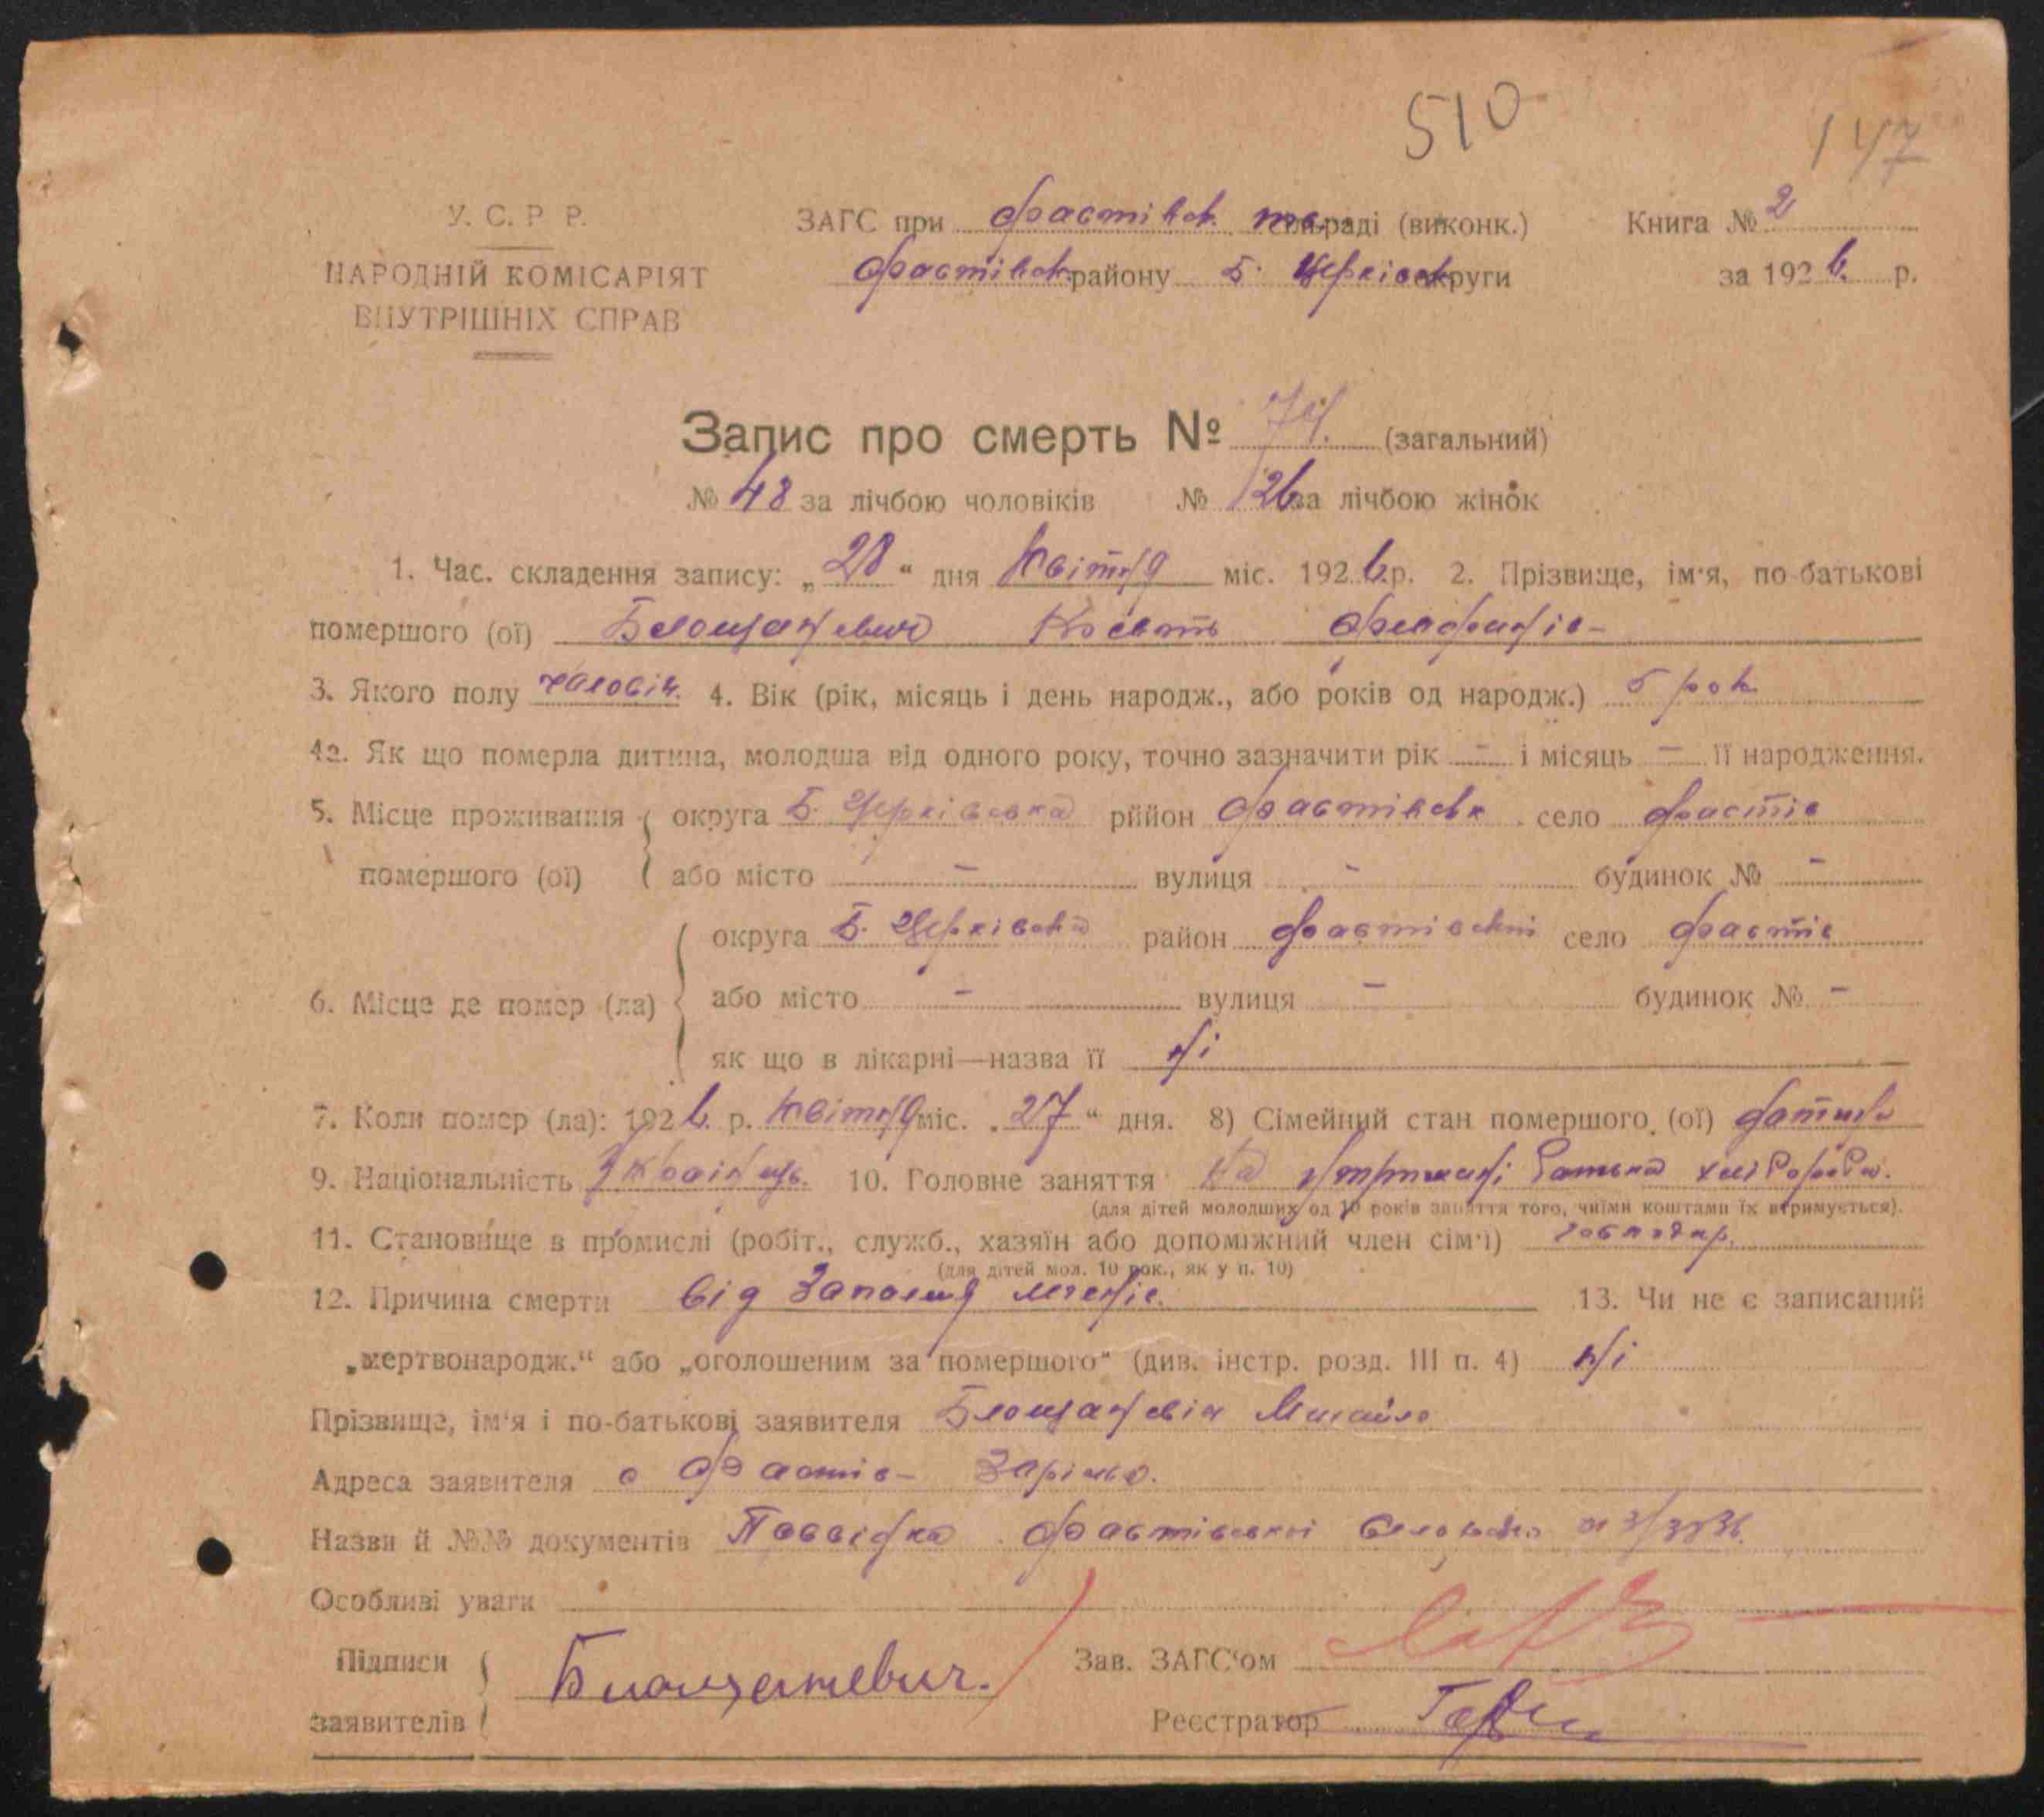 510
147
У. С. Р. Р.
НАРОДНІЙ КОМІСАРІЯТ
ВНУТРІШНІХ СПРАВ
ЗАГС при Фастівськ. раді (виконк.)
Фастівськ. району Б. Церківськ округи
Книга № 2
за 1926 р.
Запис про смерть № 74. (загальний)
№ 48 за лічбою чоловіків № 26 за лічбою жінок
1. Час. складення запису: „28“ дня Квітня міс. 1926 р. 2. Прізвище, ім'я, по-батькові
помершого (ої) Кость
3. Якого полу чоловіч. 4. Вік (рік, місяць і день народж., або років од народж.) 5 рок.
4а. Як що померла дитина, молодша від одного року, точно зазначити рік - і місяць - її народження.
5. Місце проживання округа Б. Церківська рійон Фастівськ. село Фастів
помершого (ої) або місто - вулиця - будинок № -
округа Б. Церківська район Фастівський село Фастів
6. Місце де помер (ла) або місто - вулиця - будинок № -
як що в лікарні—назва її ні
7. Коли помер (ла): 1926 р. Квітня міс. „27“ дня. 8) Сімейний стан помершого (ої) дитина
9. Національність Українць. 10. Головне заняття На утримані батька хлібороба.
(для дітей молодших од 10 років заняття того, чиїми коштами їх втримується).
11. Становище в промислі (робіт., служб., хазяїн або допоміжний член сім'ї) господар.
(для дітей мол. 10 рок., як у п. 10)
12. Причина смерти від Запалення легенів. 13. Чи не є записаний
„мертвонародж.“ або „оголошеним за помершого“ (див. інстр. розд. III п. 4) ні
Прізвище, ім'я і по-батькові заявителя Михайло
Адреса заявителя с Фастів - Заріччя.
Назви й №№ документів Посвідка Фастівської
Особливі уваги
Підписи
заявителів
Зав. ЗАГС'ом
Реєстратор